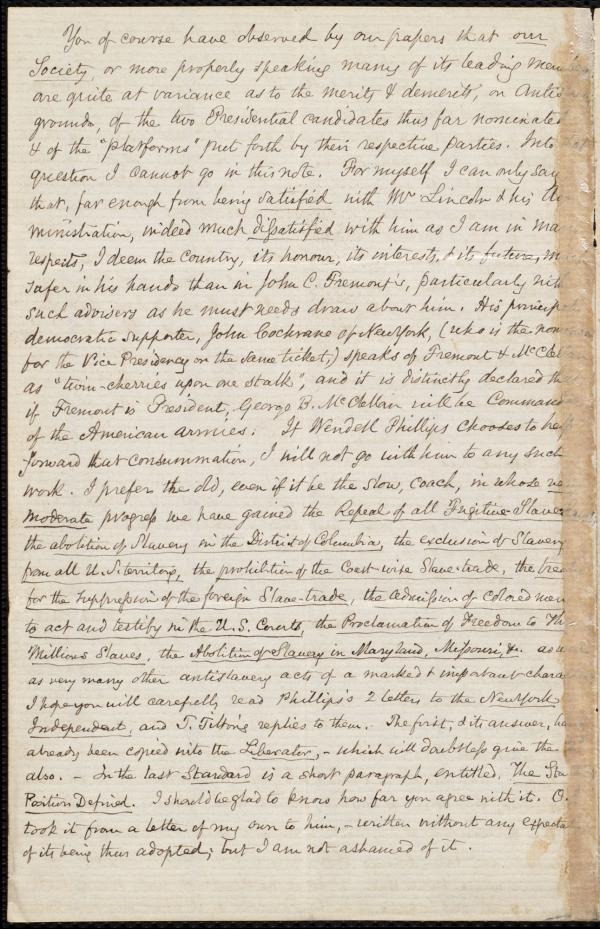 You of course have observed by our papers that our
Society, or more properly speaking many of its leading
are quite at variance as to the merits & demerits, on
grounds, of the two Presidential candidates thus far nominated
& of the "platforms" put forth by their respective parties. Into
question I cannot go in this note. For myself I can only say
that, far enough from being satisfied with Mr Lincoln & his
ministration, indeed much dissatisfied with him as I am in
respects, I deem the Country, its honour, its interests, & its future,
safer in his hands than in John C. Fremont's, particularly with
such advisers as he must needs draw about him. His
democratic supporter, John Cochrane of New York, (who is the
for the Vice Presidency on the same ticket,) speaks of Fremont &
as "twin-cherries upon one stalk", and it is distinctly declared
if Fremont is President, George B. McClellan will be
of the American armies. If Wendell Phillips chooses to
forward that consummation, I will not go with him to any such
work. I prefer the old, even if it be the slow, coach, in whose
moderate progress we have gained the Repeal of all Fugitive-
the abolition of Slavery in the District of Columbia, the exclusion of Slavery
from all U.S. territory, the prohibition of the Coast-wise Slave-trade, the
for the suppression of the foreign Slave-trade, the admission of colored men
to act and testify in the U.S. Courts, the Proclamation of Freedom to
Millions Slaves, the Abolition of Slavery in Maryland, Missouri, &c. as
as very many other antislavery acts of a marked & important
I hope you will carefully read Phillips's 2 letters to the New York
Independent, and T. Tilton's replies to them. The first, & its answer,
already been copied into the Liberator, – which will doubtless give the
also. – In the last Standard is a short paragraph, entitled, The
Position Defined. I should be glad to know how far you agree with it. O.
took it from a letter of my own to him, – written without any
of its being thus adopted; but I am not ashamed of it.